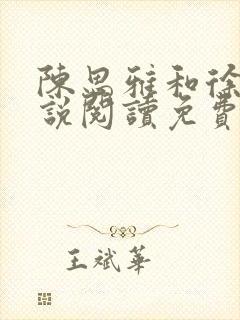 陳思雅和徐
說閱讀免費
王斌華